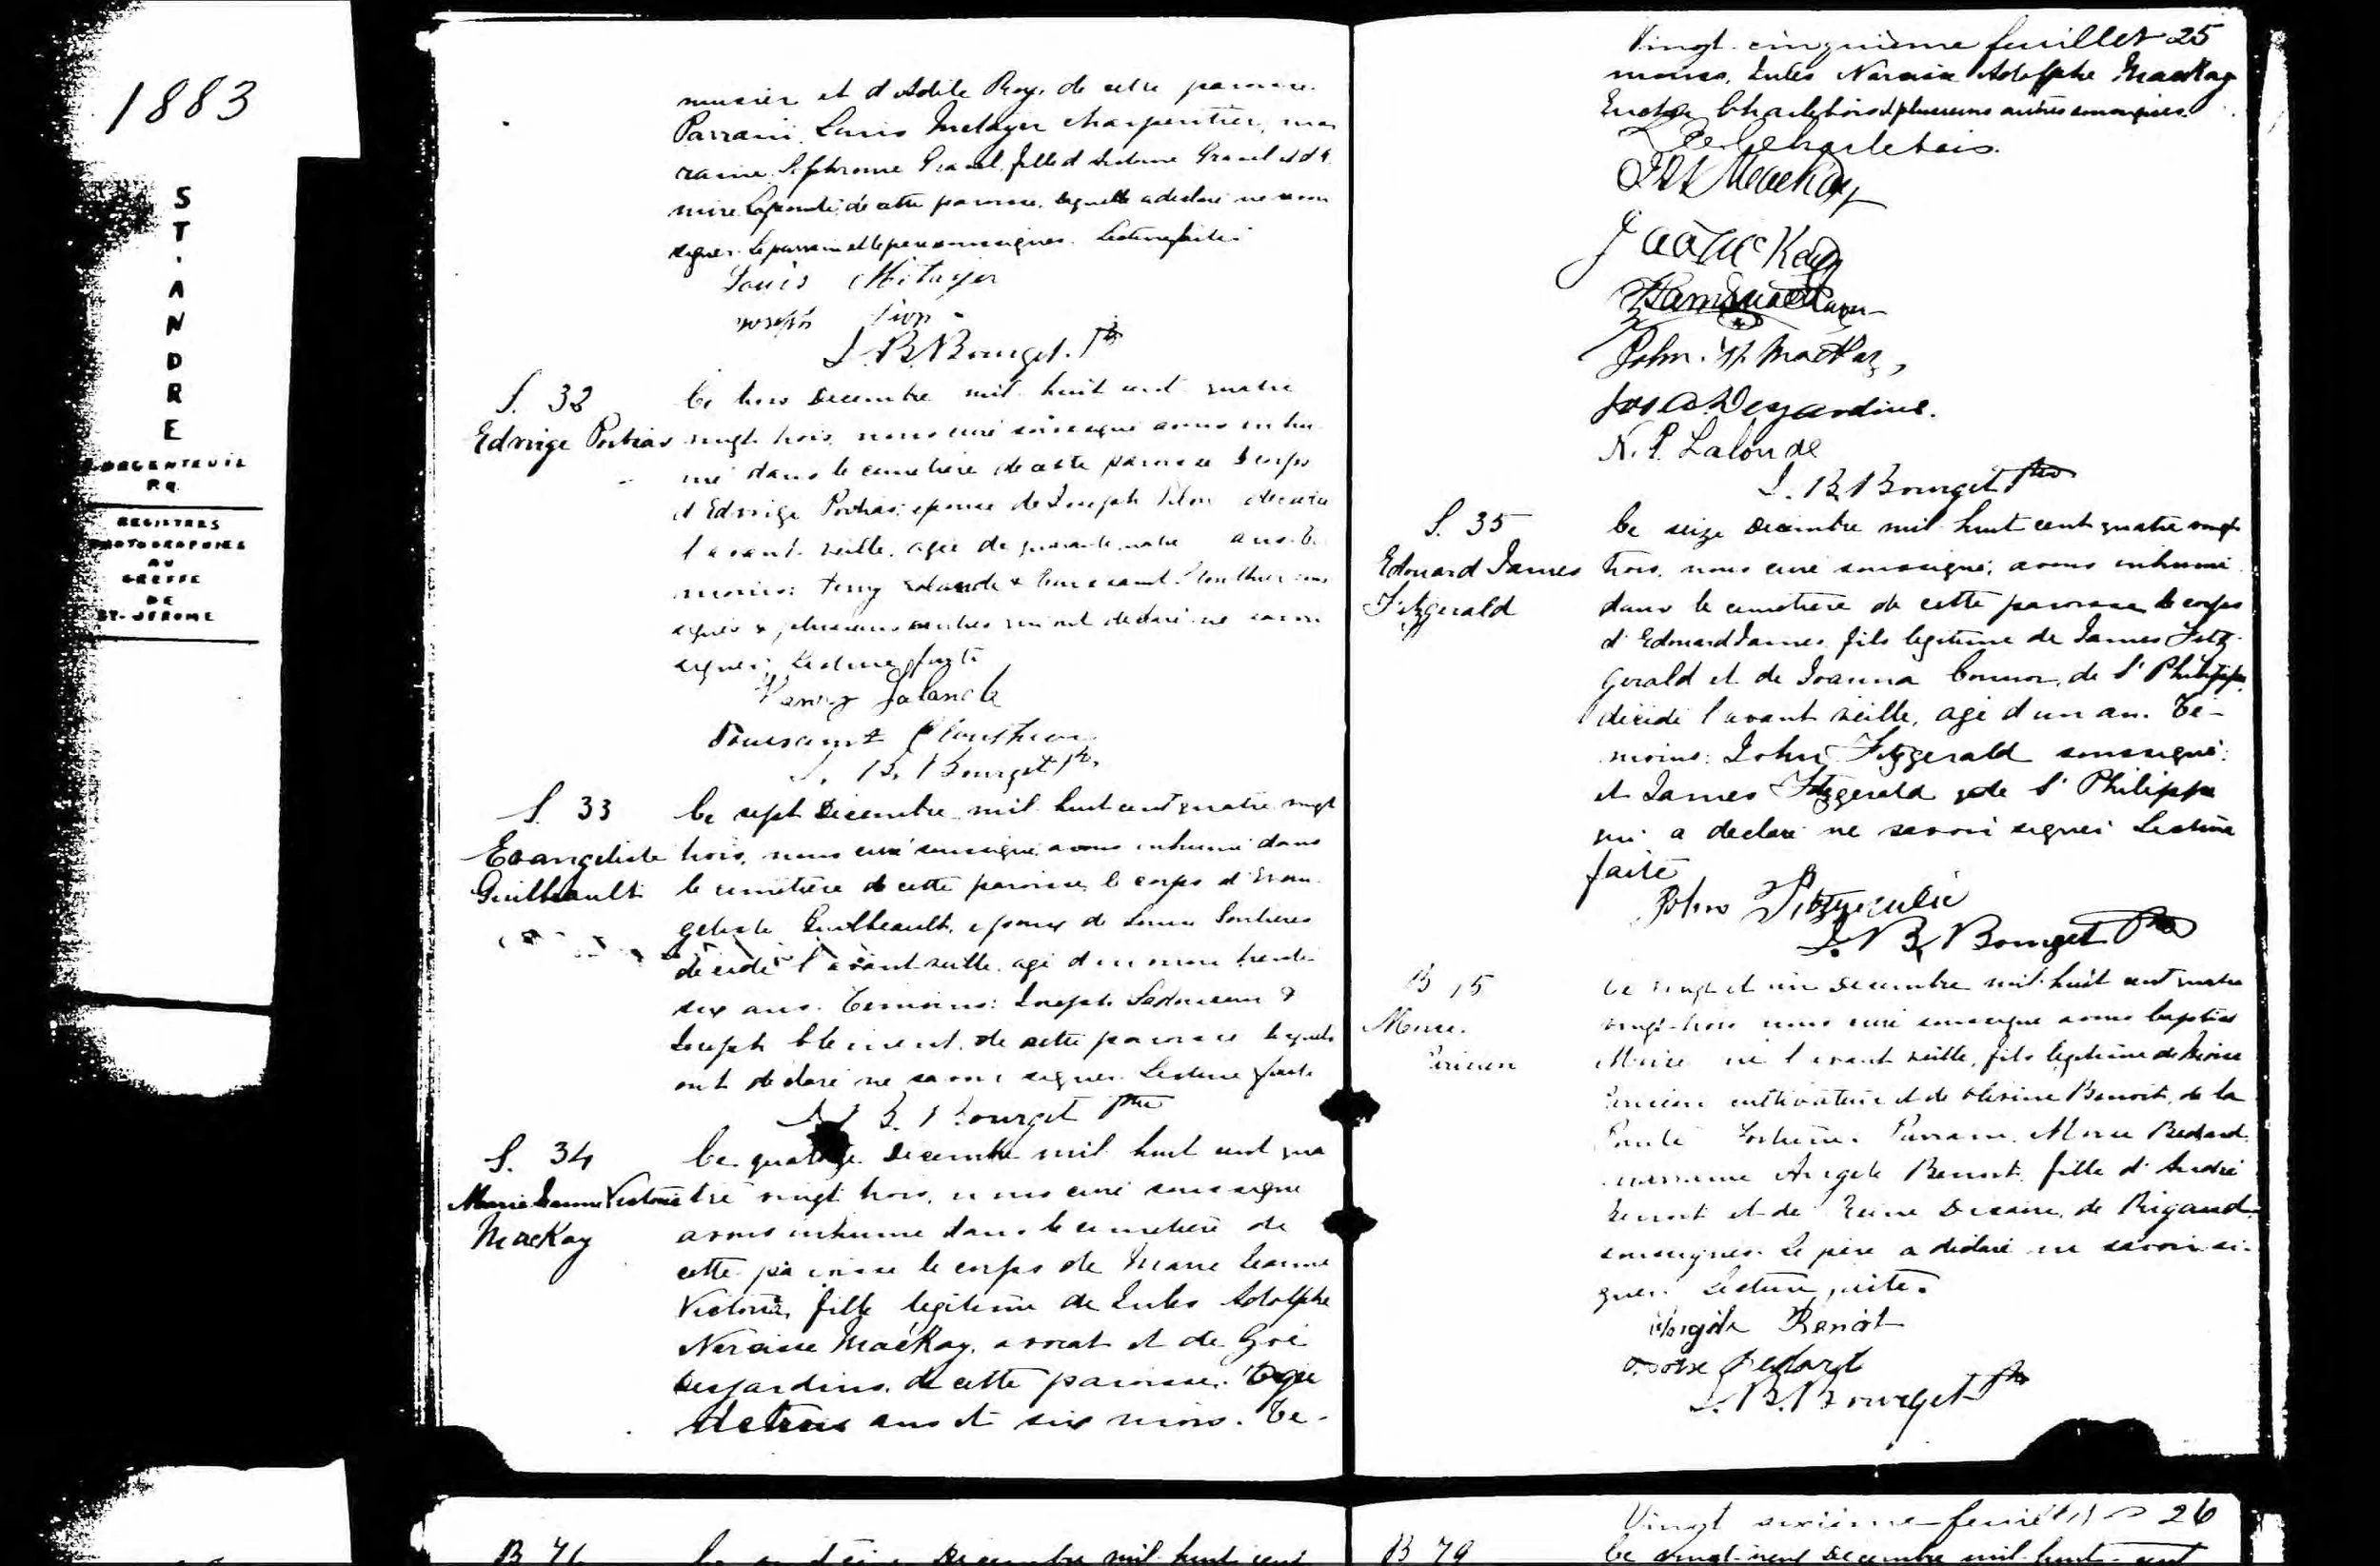 1883
ST. ANDRE
D'ARGENTEUIL
P.Q.
REGISTRES
PHOTOGRAPHIES
AU
GREFFE
DE
ST-JEROME
nusier et d'Adèle Roy, de cette paroisse.
Parrain Louis Metayer charpentier, mar
raine Sephronie Gravel fille d'Antoine Gravel et d'
de cette paroisse, laquelle a déclaré ne savoir
signer. Le parrain et le père soussignés. Lecture faite.
Louis Mitayer
Joseph
J. B. Bourget. Ptre
S. 32
Edwige Poitras
Ce trois Decembre mil huit cent quatre
vingt trois, nous curé soussigné avons inhu
mé dans le cimetière de cette paroisse le corps
d'Edwige Poitras épouse de Joseph Pilon décédée
l'avant veille, agée de quarante quatre ans. Té
moins: Ferry Lalande & Toussaint Clouthier sous
signés & plusieurs autres qui ont déclaré ne savoir
signer. Lecture faite
Ferry Lalande
Toussaint Clouthier
J. B. Bourget Ptre
S. 33
Evangeliste
Guilbeault
Ce sept Decembre mil huit cent quatre vingt
trois, nous curé soussigné avons inhumé dans
le cimetière de cette paroisse, le corps d'Evan
geliste Guilbeault, époux de
décédé l'avant veille, agé d'environ trente
six ans. Temoins: Joseph &
Joseph Clement, de cette paroisse lesquels
ont déclaré ne savoir signer. Lecture faite
J. B. Bourget Ptre
S. 34
Marie Jeanne Victoria
MacKay
Ce quatorze Decembre mil huit cent qua
tre vingt trois, nous curé soussigné
avons inhumé dans le cimetière de
cette paroisse le corps de Marie Jeanne
Victoria, fille légitime de Jules Adolphe
Narcisse MacKay, avocat et de Zoé
Desjardins, de cette paroisse. Agée
de trois ans et six mois. Té-
Vingt cinquième feuillet 25
moins, Jules Narcisse Adolphe MacKay
Charlebois & plusieurs autres soussignés.
Charlebois
MacKay
MacKay
John. MacKay
Jos A. Desjardins.
N. P. Lalonde
J. B. Bourget Ptre
S. 35
Edouard James
Fitzgerald
Ce seize Decembre mil huit cent quatre vingt
trois, nous curé soussigné, avons inhumé
dans le cimetière de cette paroisse le corps
d'Edouard James, fils légitime de James Fitz
Gerald et de Joanna Connor, de St Philippe,
décédé l'avant veille, agé d'un an. Té-
moins: John Fitzgerald soussigné
et James Fitzgerald de St Philippe
qui a déclaré ne savoir signer Lecture
faite
John Fitzgerald
J. B. Bourget Ptre
B 75
Moise
Ce vingt et un Decembre mil huit cent quatre
vingt-trois nous curé soussigné avons baptisé
Moise né l'avant veille, fils légitime de Moise
cultivateur et de Benoit, de la
Pointe Fortune. Parrain, Moise Bedard.
marraine Angèle Benoit fille d'André
Benoit et de Reine Decaire, de Rigaud.
soussignés. Le père a déclaré ne savoir si-
gner. Lecture faite.
Angèle Benoit
Moise Bedard
J. B. Bourget Ptre
B 76
Decembre mil huit cent
Vingt sixième feuillet 26
B 79
Ce vingt-neuf Decembre mil huit cent